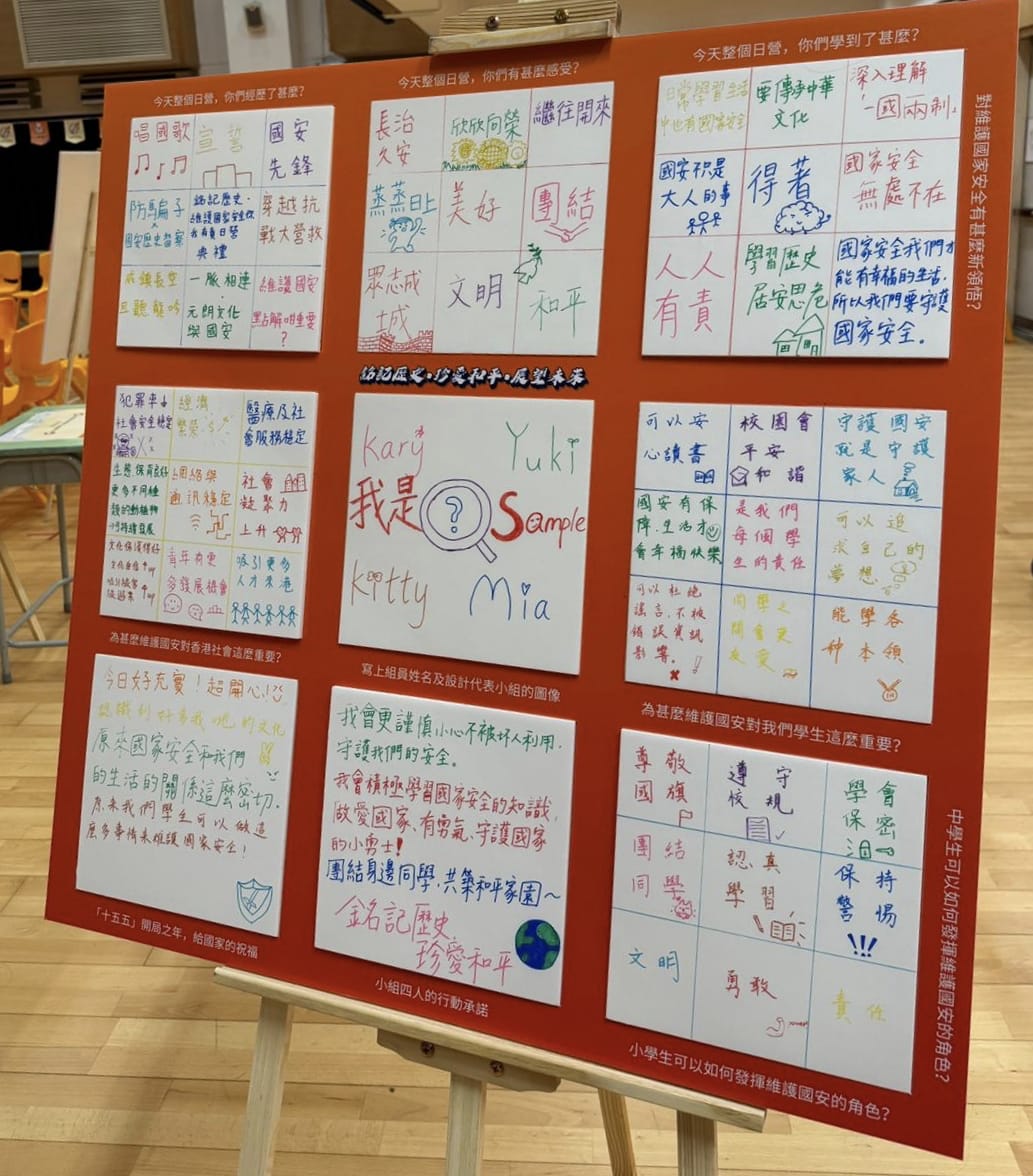 今天整個日營，你們經歷了甚麼？
唱國歌
宣誓
國安
先鋒
防騙子
國安歷史督察
銘記歷史·
維護國家安全你
我有責日營
典禮
穿越抗
戰大營救
威鎮長空
互聽龍吟
一脈相連
·
元朗文化
與國安
維護國安
點解咁重要
?
今天整個日營，你們有甚麼感受？
長治
久安
欣欣向榮
繼往開來
蒸蒸日上
美好
團結
眾志成
城
文明
和平
今天整個日營，你們學到了甚麼？
日常學習生活
中也有國家安全
要傳承中華
文化
深入理解
「一國兩制」
國安不只是
大人的事
得著
國家安全
無處不在
人人
有責
學習歷史
居安思危
國家安全我們才
能有幸福的生活，
所以我們要守護
國家安全。
對維護國家安全有甚麼新領悟？
銘記歷史·珍愛和平·展望未來
犯罪率↓
社會安全穩定
經濟
繁榮
醫療及社
會服務穩定
生態保育良好
更多不同種
類的動植物
可持續發展
網絡與
通訊穩定
社會
凝聚力
上升
文化保護得好
文化自信↑up
吸引旅客↑up
青年有更
多發展機會
吸引更多
人才來港
為甚麼維護國安對香港社會這麼重要？
Kary
Yuki
我是 ? Sample
kitty
Mia
寫上組員姓名及設計代表小組的圖像
可以安
心讀書
校園會
平安
和諧
守護國安
就是守護
家人
國安有保
障，生活才
會幸福快樂
是我們
每個學
生的責任
可以追
求自己的
夢想
可以杜絕
謠言，不被
錯誤資訊
影響。
同學之
間會更
友愛
能學各
種本領
為甚麼維護國安對我們學生這麼重要？
今日好充實！超開心！
認識到好多我哋的文化
原來國家安全和我們
的生活的關係這麼密切。
原來我們學生可以做這
麼多事情來維護國家安全！
「十五五」開局之年，給國家的祝福
我會更謹慎小心不被坏人利用，
守護我們的安全。
我會積極學習國家安全的知識，
做愛國家、有勇氣、守護國家
的小勇士！
團結身邊同學，共築和平家園～
銘記歷史
珍愛和平
小組四人的行動承諾
尊敬
國旗
遵守
校規
學會
保密
團結
同學
認真
學習
保持
警惕
!!!
文明
勇敢
責任
中學生可以如何發揮維護國安的角色？
小學生可以如何發揮維護國安的角色？